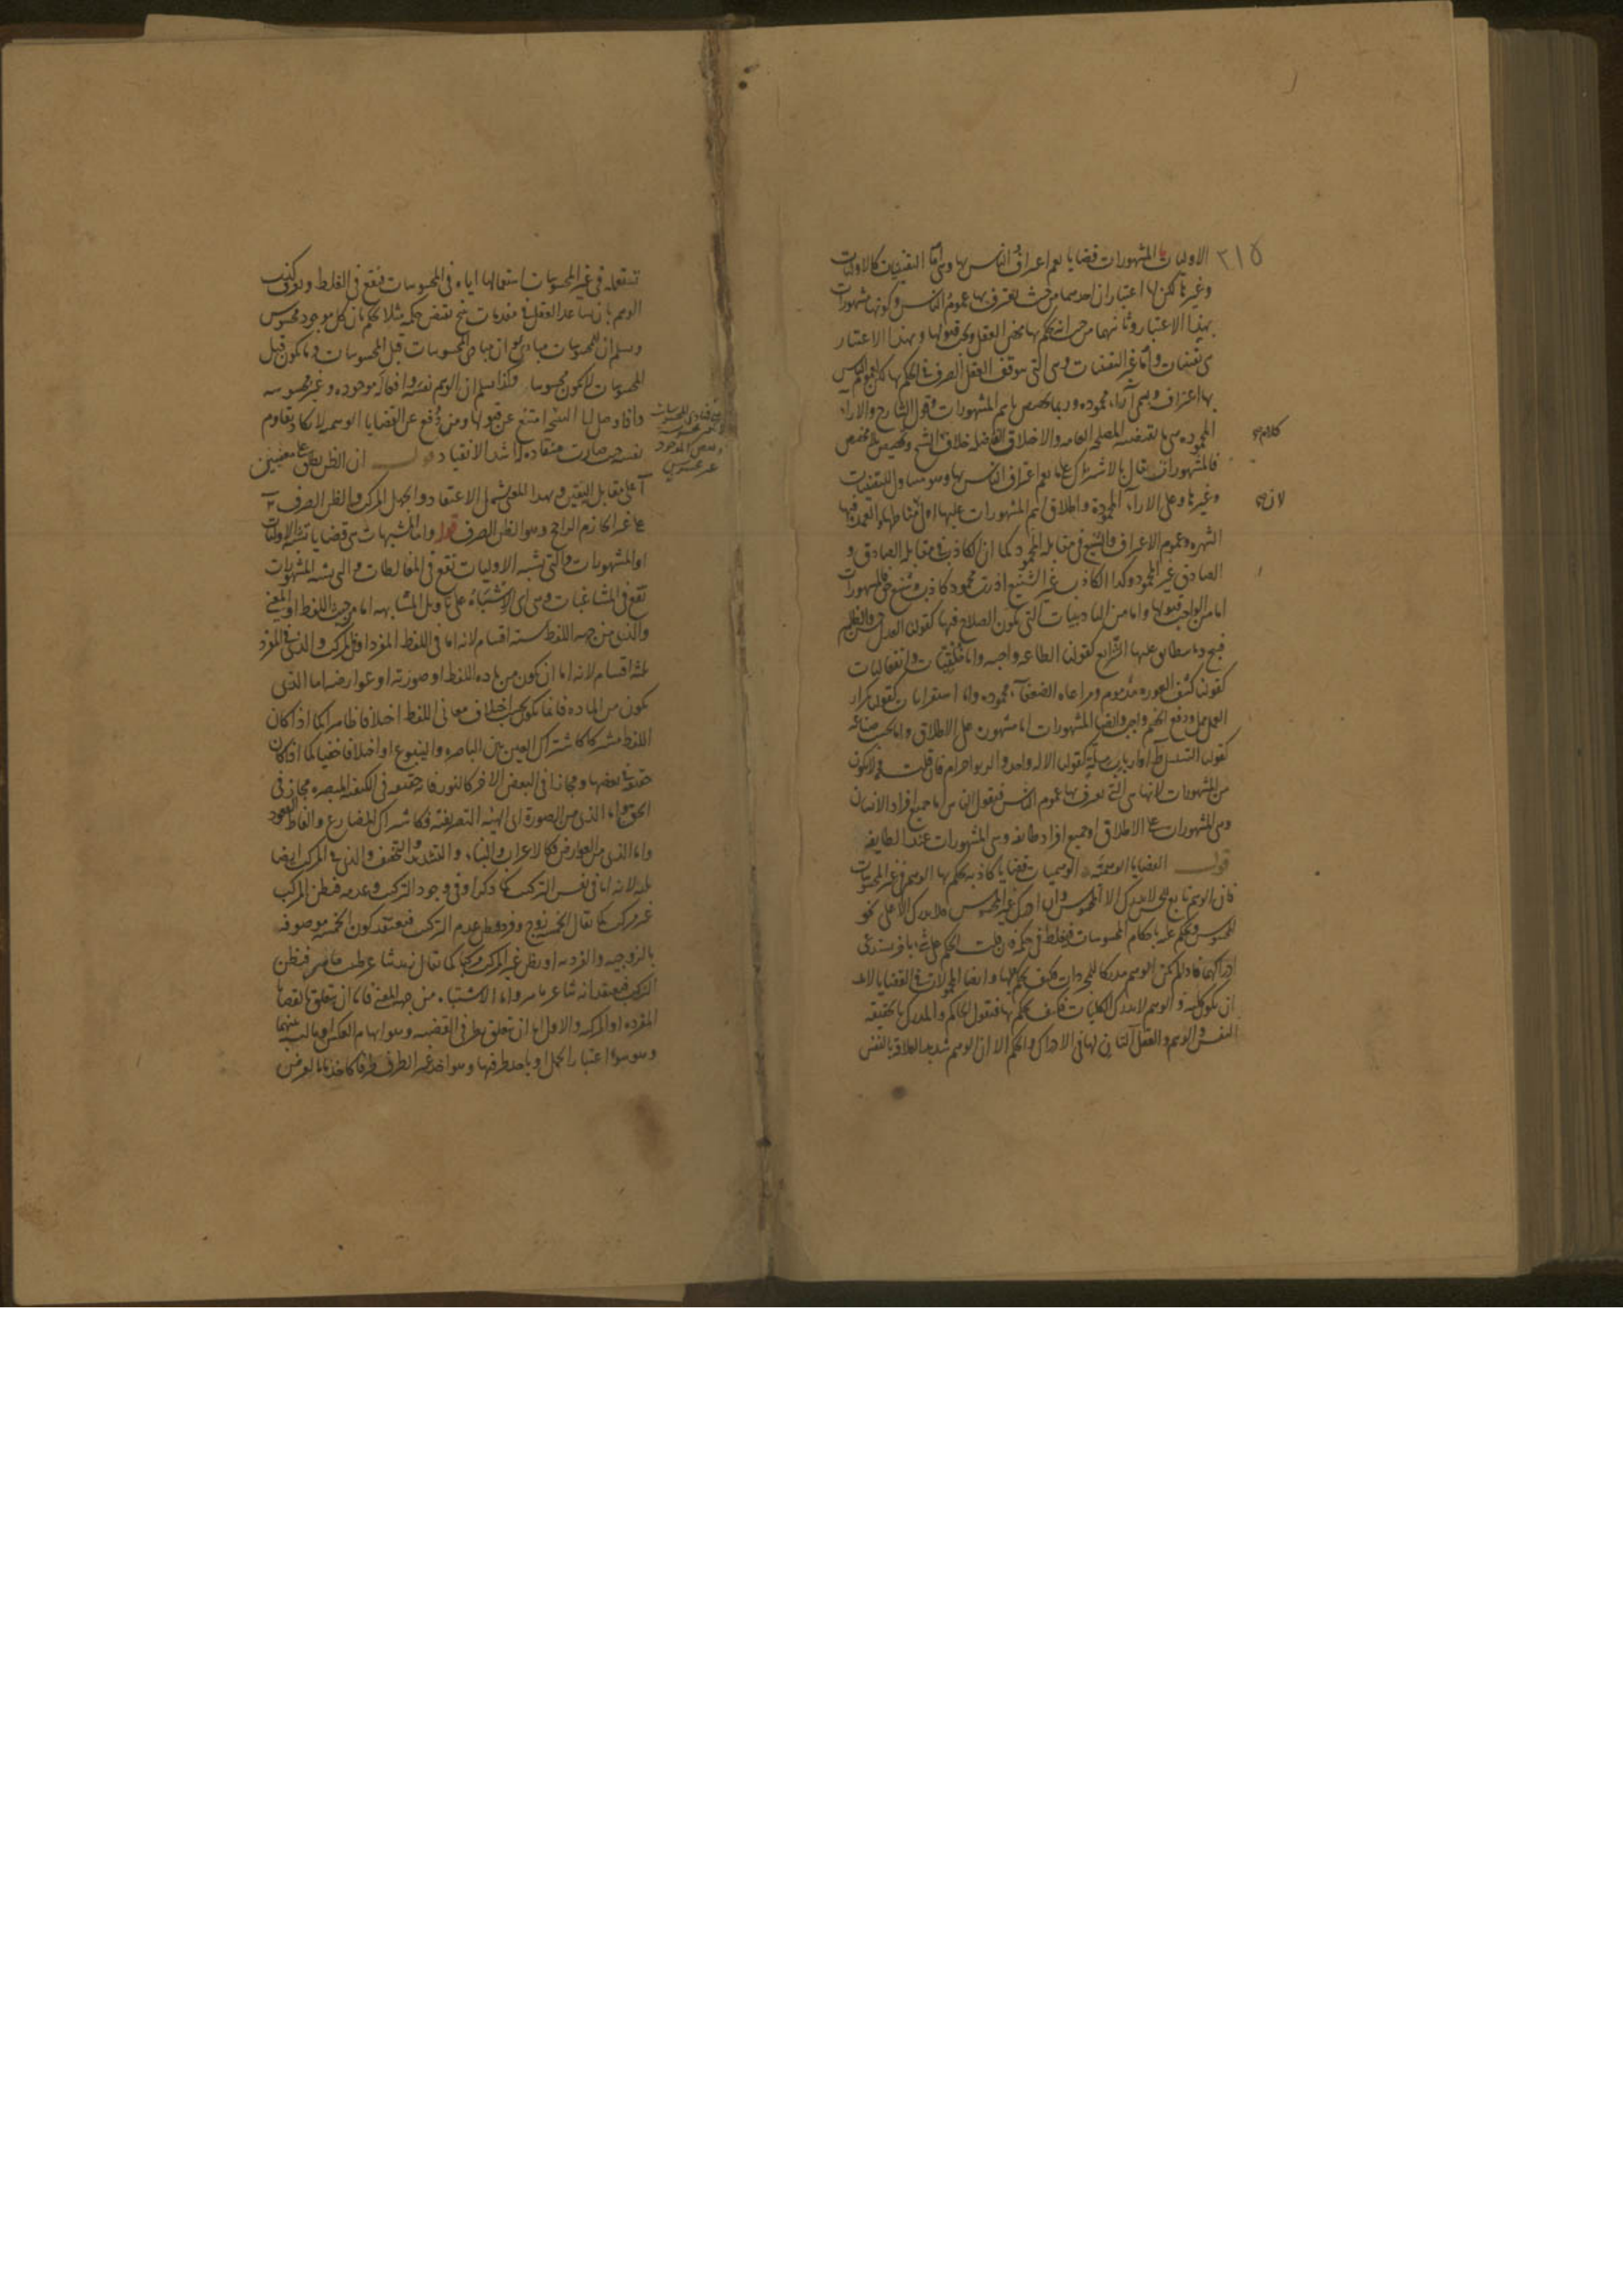 ٣١٥
الاوليات المشهورات قضايا يعم اعتراف الناس بها وهي اما اليقينيات كالاوليات
وغيرها لكن لها اعتباران احدهما من حيث يعترف بها عموم الناس وكونها مشهورات
بهذا الاعتبار وثانيهما من حيث انه يحكم بها محض العقل ويجب قبولها وبهذا الاعتبار
هي يقينيات واما غير اليقينيات وهي التي يتوقف العقل الصرف في الحكم بها لكن لعموم الناس
بها اعتراف ويسمى آراء محموده وربما يخصص باسم المشهورات وقول الشارح والاراء
المحموده هي ما يقتضيه المصلحه العامه والاخلاق الفاضله خلاف الشيخ وتخصيص بلا مخصص
كلام
فالمشهورات يقال بالاشتراك على ما يعم اعتراف الناس بها وهو متناول لليقينيات
وغيرها وعلى الآراء المحمودة واطلاق اسم المشهورات عليها اولى لان مناطها والعمدة فيها
لان
الشهره وعموم الاعتراف والشنيع في مقابله المحمود كما ان الكاذب في مقابله الصادق و
الصادق غير المحمود وكذا الكاذب غير الشنيع اذ رب محمود كاذب وشنيع حق فالمشهورات
اما من الواجب قبولها واما من التاديبيات التي يكون الصلاح فيها كقولنا العدل حسن والظلم
قبيح وما يتطابق عليها الشرايع كقولنا الطاعه واجبه واما خلقيات وانفعاليات
كقولنا كشف العوره مذموم ومراعاه الضعفآء محموده واما استقرائيات كقولنا تكرار
العمل ممل ودفع الخصم واجب وايضا المشهورات اما مشهوره على الاطلاق واما بحسب صناعه
كقولنا التسلسل محال او ارباب مله كقولنا الاله واحد والربوا حرام فان قلت فح لا يكون
من المشهورات لانها هي التي يعترف بها عموم الناس فيقول الناس اما جميع افراد الانسان
وهي المشهورات على الاطلاق او جميع افراد طائفه وهي المشهورات عند الطايفه
قوله القضايا الوهميه الوهميات قضايا كاذبه يحكم بها الوهم في غير المحسوسات
فان الوهم تابع للحس لا يدرك الا المحسوس وان ادرك غير المحسوس فلا يدركه الا على نحو
المحسوس ويحكم عليه باحكام المحسوسات فيغلط في حكمه فان قلت الحكم على شيء باخر يستدعي
ادراكهما فاذا لم يكن الوهم مدركا للمجردات فكيف يحكم عليها وايضا المحمولات في القضايا لا بد
ان يكون كلية والوهم لا يدرك الكليات فكيف يحكم بها فنقول الحاكم والمدرك بالحقيقه
النفس والوهم والعقل آلتان لها في الادراك والحكم الا ان الوهم شديد العلاقة بالنفس
تستعمله في غير المحسوسات استعمالها اياه في المحسوسات فيقع في الغلط ويعرف كذب
الوهم بان يساعد العقل في مقدمات ينتج نقيض حكمه مثلا يحكم بان كل موجود محسوس
ويسلم ان للمحسوسات مبادي وان مبادي المحسوسات قبل المحسوسات وما يكون قبل
المحسوسات لا يكون محسوسا وكذا يسلم ان الوهم نفسه وافعاله موجوده وغير محسوسه
فاذا وصل الى النتيجة امتنع عن قبولها ومن دفع عن القضايا الوهميه لا يكاد يقاوم
نفسه حيث صارت منقاده له اشد الانقياد قوله ان الظن يطلق على معنيين
آ على مقابل اليقين وبهذا المعنى يشمل الاعتقاد والجهل المركب والظن الصرف ب
على غير الجازم الراجح وهو الظن الصرف قوله واما المشبهات هي قضايا تشبه الاوليات
او المشهورات والتي تشبه الاوليات تقع في المغالطات والتي تشبه المشهورات
تقع في المشاغبات وهي اى الاشتباه على تاويل المشابهه اما من جهة اللفظ او المعنى
والذي من جهه اللفظ سته اقسام لانه اما في اللفظ المفرد او في المركب والذي في المفرد
ثلثه اقسام لانه اما ان يكون من ماده اللفظ او صورته او عوارضه اما الذي
يكون من الماده فانما يكون بحسب اختلاف معاني اللفظ اختلافا ظاهرا كما اذا كان
اللفظ مشتركا كاشتراك العين بين الباصره والينبوع او اختلافا خفيا كما اذا كان
حقيقة في بعضها ومجازا في البعض الاخر كالنور فانه حقيقه في الكيفيه المبصره مجاز في
الحق واما الذي من الصورة اى الهيئه التصريفيه فكاشتراك المضارع والفاظ العقود
واما الذي من العوارض فكالاعراب والبناء والتشديد والتخفيف والذي في المركب ايضا
ثلثه لانه اما في نفس التركيب كما ذكر او في وجود التركيب وعدمه فيظن المركب
غير مركب كما يقال الخمسه زوج وفرد ويظن عدم التركيب فيعتقد كون الخمسه موصوفه
بالزوجيه والفرديه او يظن غير المركب مركبا كما يقال زيد شاعر طبيب ماهر فيظن
التركيب فيعتقد انه شاعر ماهر واما الاشتباه من جهه المعنى فاما ان يتعلق بالقضايا
المفرده او المركبه والاول اما ان يتعلق بطرفي القضيه وهو ايهام العكس او بالنسبه بينهما
وهو سوء اعتبار الحمل او باحد طرفيها وهو اخذ غير الطرف طرفا كاخذ ما بالعرض